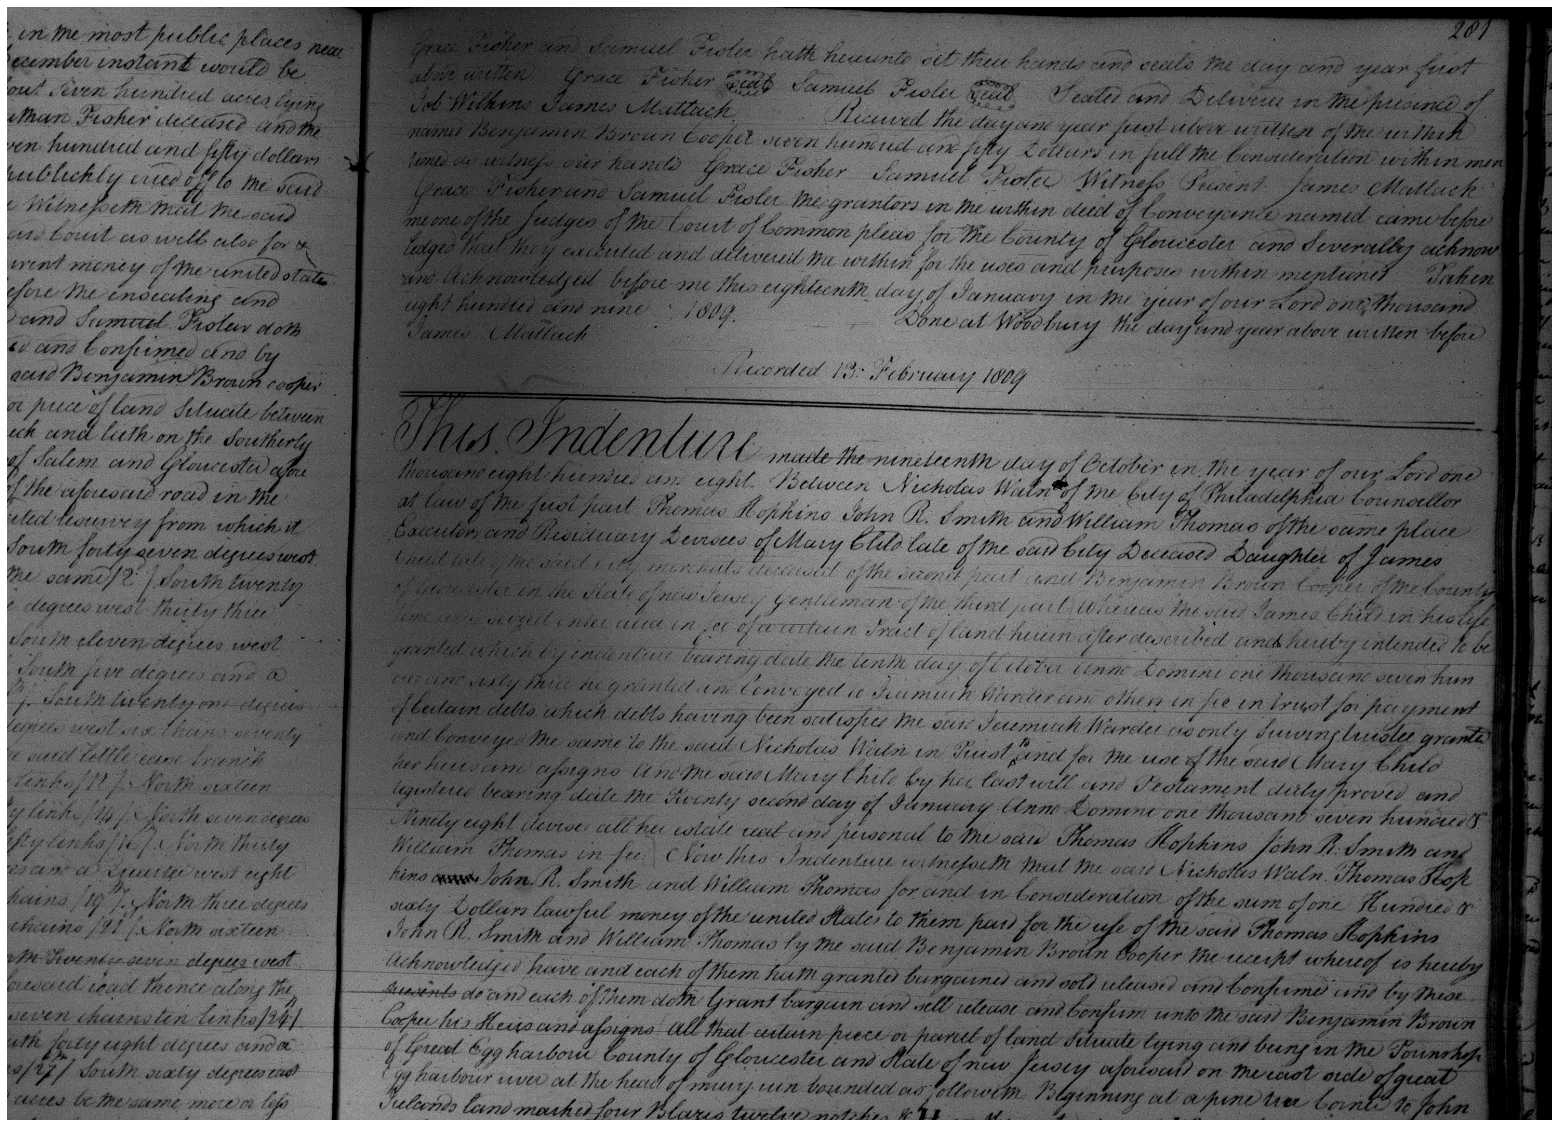 in the most public places near
december instant would be
out seven hundred acres lying
Fisher deceased and the
ven hundred and fifty dollars
publickly cried off to the said
Witnesseth that the said
and Court as well also for &
urrent money of the united states
efore the ensealing and
and Samuel Fisler doth
ed and Confirmed and by
said Benjamin Brown cooper
or piece of land Situate between
and lieth on the Southerly
of Salem and Gloucester
of the aforesaid road in the
resurvey from which it
South forty seven degrees west
the same /2/ South twenty
degrees west thirty three
South eleven degrees west
South five degrees and a
South twenty one degrees
degrees west six chains seventy
said little ease branch
links /12/ North sixteen
ty links /14/ North seven degrees
fifty links /16/ North thirty
es and a Quarter west eight
chains /19/ North three degrees
chains /21/ North sixteen
th Twenty seven degrees west
foresaid road thence along the
seven chains ten links /24/
uth forty eight degrees and a
/27/ South sixty degrees east
acres be the same more or less
281
Grace Fisher and Samuel Fisler hath hereunto set their hands and seals the day and year first
above written Grace Fisher Seal Samuel Fisler Seal Sealed and Delivered in the presence of
Job Wilkins James Matlack Received the day and year first above written of the within
named Benjamin Brown Cooper seven hundred and fifty Dollars in full the Consideration within men
tioned as witness our hands Grace Fisher Samuel Fisler Witness Present James Matlack
Grace Fisher and Samuel Fisler the grantors in the within deed of Conveyance named came before
me one of the Judges of the Court of Common pleas for the County of Gloucester and Severally acknow
ledged that they executed and delivered the within for the uses and purposes within mentioned Taken
and Acknowledged before me this eighteenth day of January in the year of our Lord one thousand
eight hundred and nine 1809. Done at Woodbury the day and year above written before
James Matlack
Recorded 13: February 1809
This Indenture made the nineteenth day of October in the year of our Lord one
thousand eight hundred and eight Between Nicholas Waln of the City of Philadelphia Councellor
at law of the first part Thomas Hopkins John R. Smith and William Thomas of the same place
Executors and Residuary Devisees of Mary Child late of the said City Deceased Daughter of James
Child late of the said City merchants deceased of the second part and Benjamin Brown Cooper of the County
of Gloucester in the State of new Jersey Gentleman of the third part Whereas the said James Child in his life
time was seized inter alia in fee of a certain Tract of land herein after described and hereby intended to be
granted which by indenture bearing date the tenth day of October Anno Domini one thousand seven hun
dred and sixty three he granted and Conveyed to Jeremiah Warder and others in fee in trust for payment
of Certain debts which debts having been satisfied the said Jeremiah Warder as only Surviving trustee granted
and Conveyed the same to the said Nicholas Waln in Trust to and for the use of the said Mary Child
her heirs and assigns And the said Mary Child by her last will and Testament duly proved and
registered bearing date the Twenty second day of January Anno Domini one thousand seven hundred &
Ninety eight devised all her estate real and personal to the said Thomas Hopkins John R. Smith and
William Thomas in fee Now this Indenture witnesseth that the said Nicholas Waln Thomas Hop
kins John R. Smith and William Thomas for and in Consideration of the sum of one Hundred &
sixty Dollars lawful money of the united States to them paid for the use of the said Thomas Hopkins
John R. Smith and William Thomas by the said Benjamin Brown Cooper the receipt whereof is hereby
Acknowledged have and each of them hath granted bargained and sold released and Confirmed and by these
presents do and each of them doth Grant bargain and sell release and Confirm unto the said Benjamin Brown
Cooper his Heirs and assigns all that certain piece or parcel of land situate lying and being in the Township
of Great Egg harbour County of Gloucester and State of new Jersey aforesaid on the east side of great
Egg harbour river at the head of run bounded as followeth Beginning at a pine tree Corner to John
Irelands land marked four Blazes twelve notches &